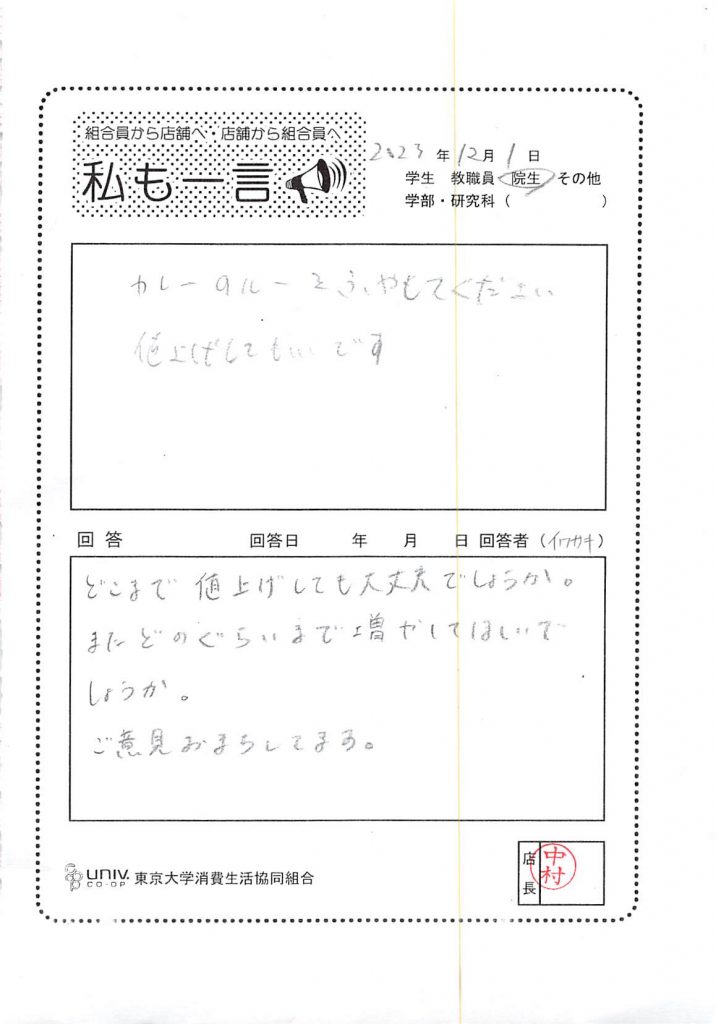 組合員から店舗へ・店舗から組合員へ
私も一言
2023年12月1日
学生 教職員 院生 その他
学部・研究科（ ）
カレーのルーをふやもてください
値上げしてもいいです
回答 回答日 年 月 日 回答者（イワサキ）
どこまで値上げしても大丈夫でしょうか。
またどのぐらいまで増やしてほしいで
しょうか。
ご意見おまちしてます。
UNIV. CO-OP 東京大学消費生活協同組合
店長 中村